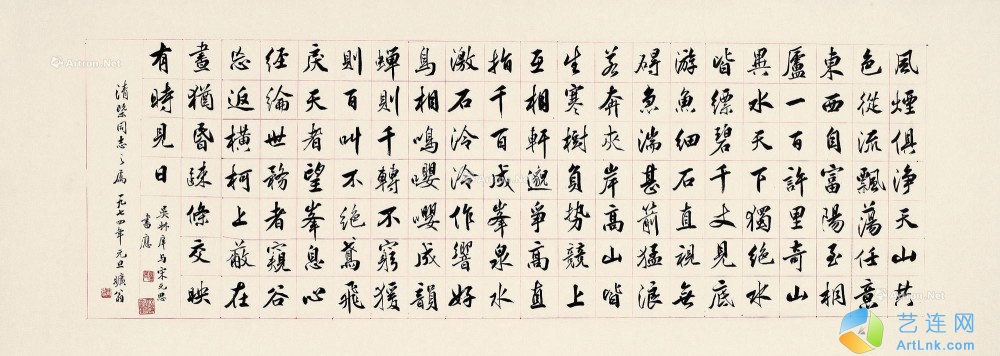 風煙俱淨天山共
色從流飄蕩任意
東西自富陽至桐
廬一百許里奇山
異水天下獨絕水
皆縹碧千丈見底
游魚細石直視無
礙急湍甚箭猛浪
若奔夾岸高山皆
生寒樹負勢競上
互相軒邈爭高直
指千百成峯泉水
激石泠泠作響好
鳥相鳴嚶嚶成韻
蟬則千轉不窮猨
則百叫不絕鳶飛
戾天者望峯息心
經綸世務者窺谷
忘返橫柯上蔽在
晝猶昏疎條交映
有時見日
吳叔庠与宋元思
書應
清同志之屬一九七四年元旦翁
艺连网
ArtLnk.com